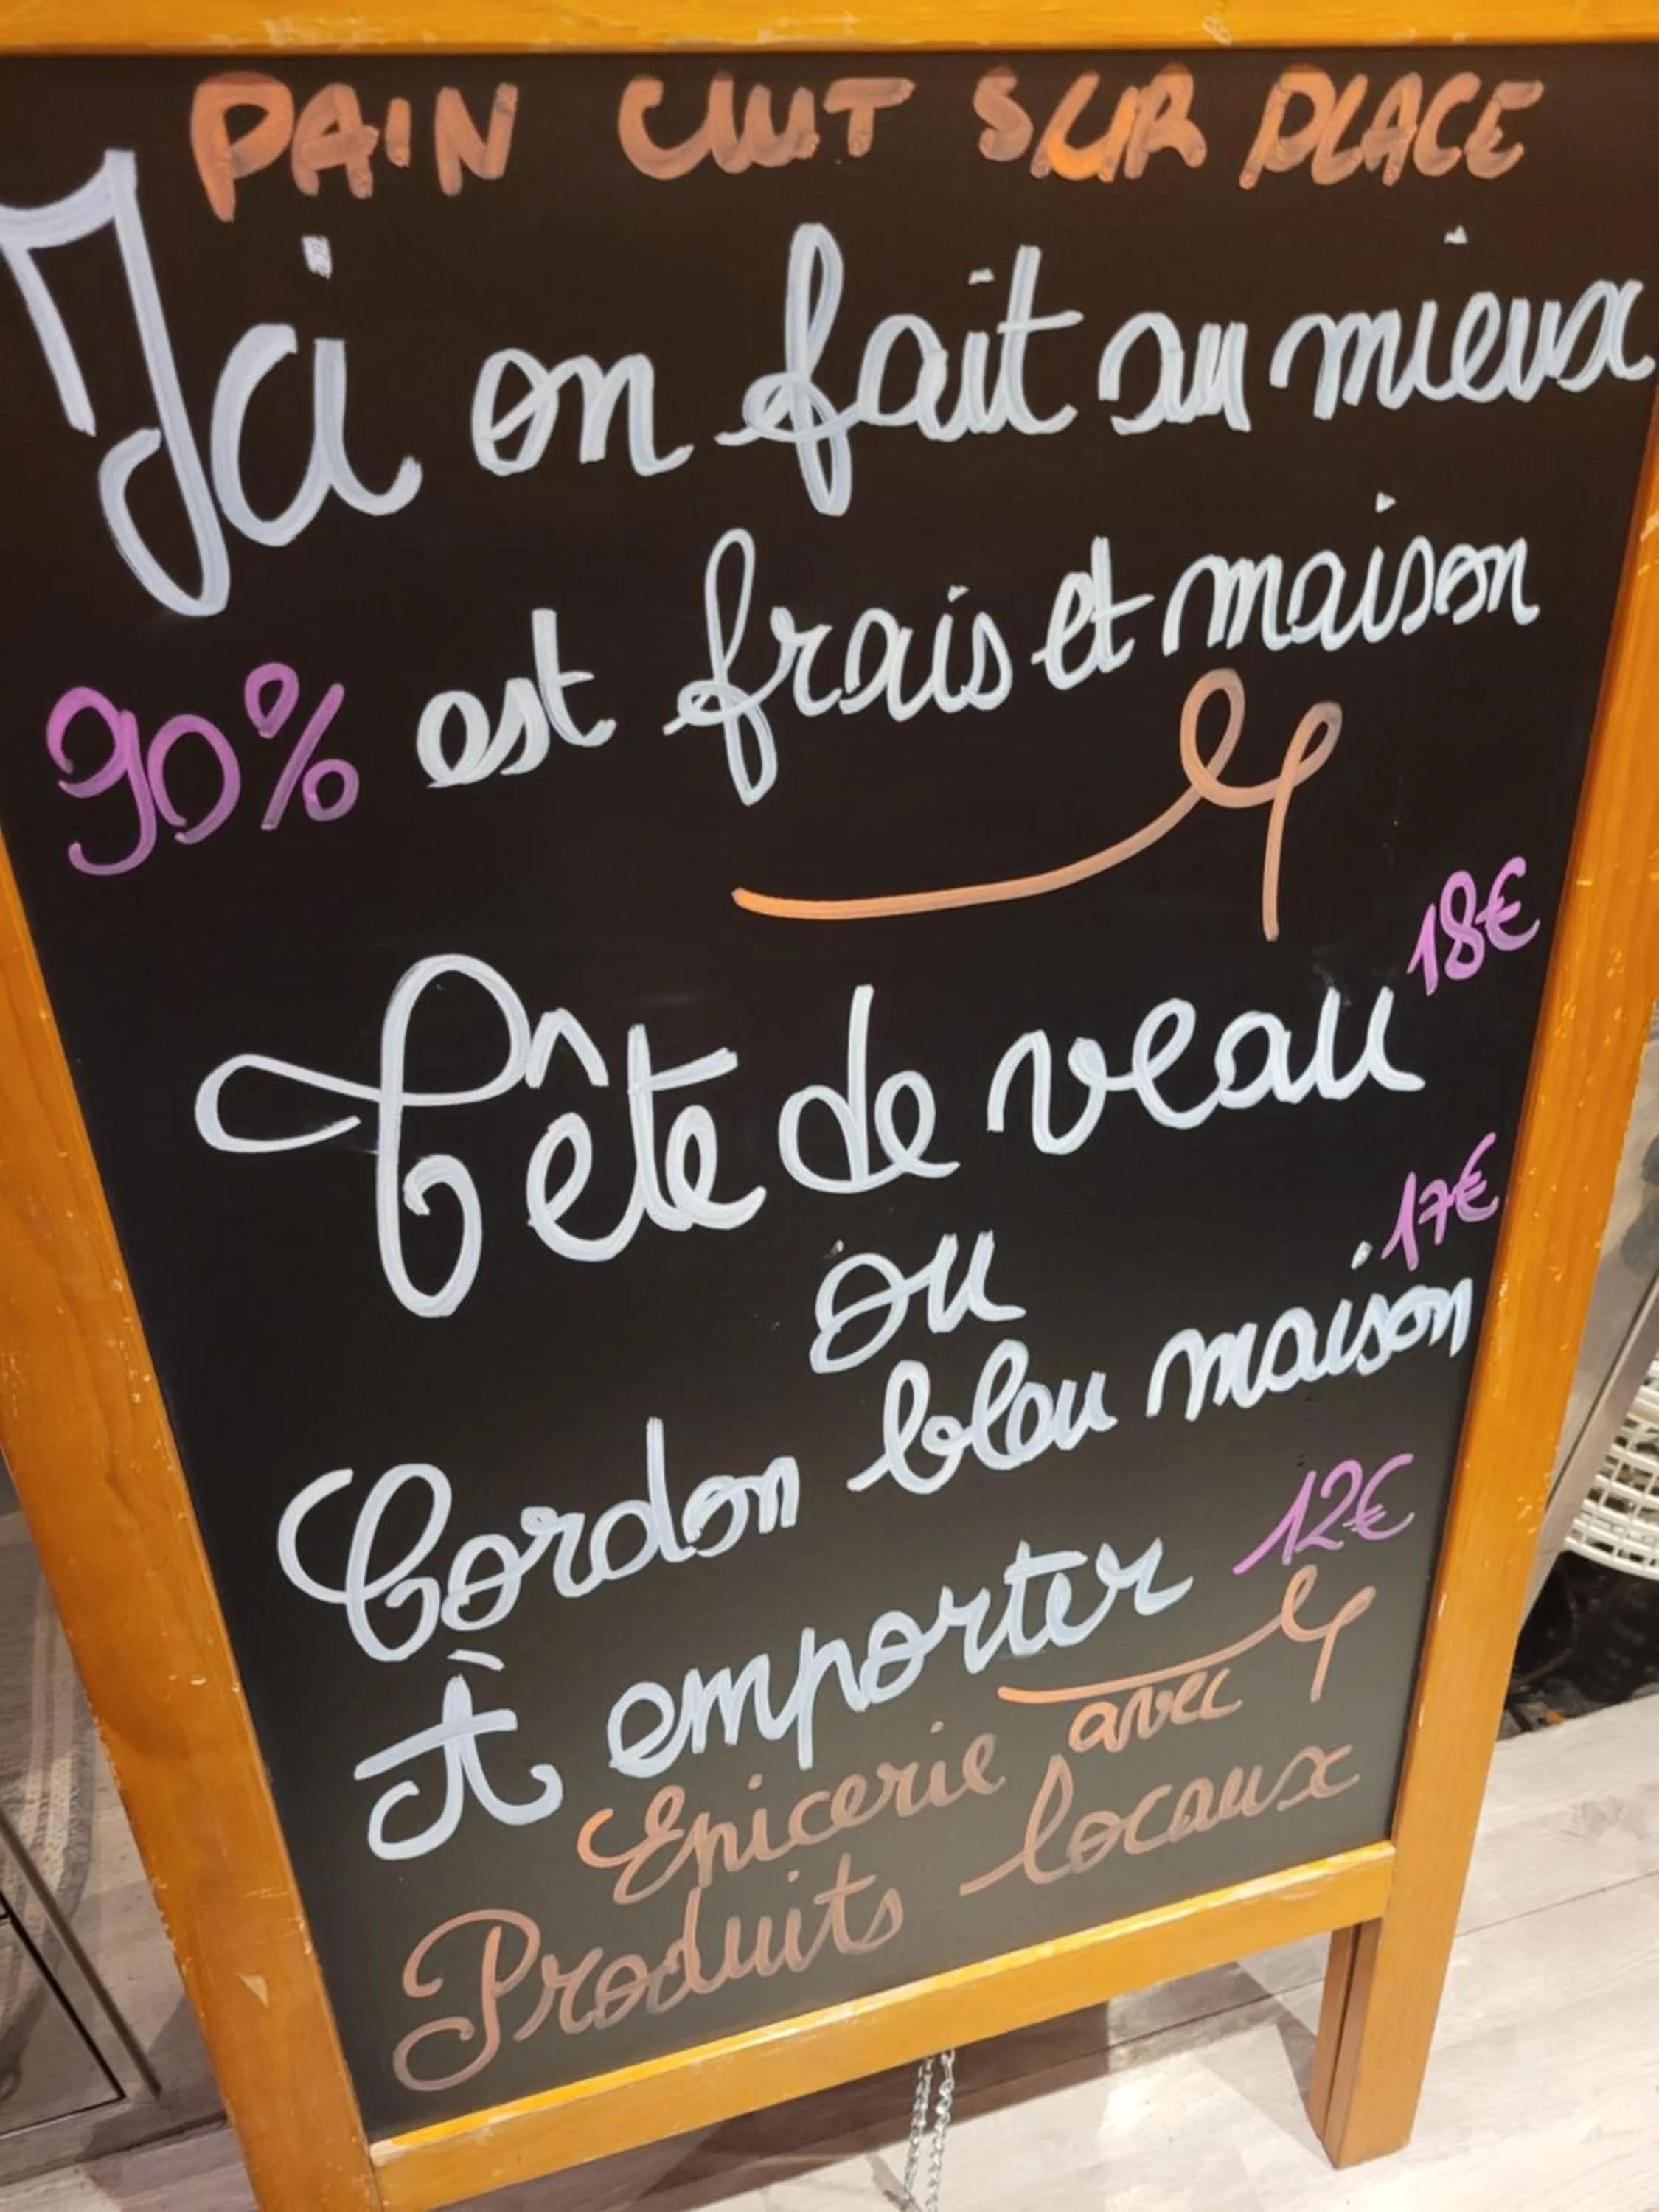 PAIN CUIT SUR PLACE
Ici on fait au mieux
90% est frais et maison
18€
Tête de veau
ou
17€
Cordon bleu maison
À emporter 12€
Epicerie avec
Produits locaux